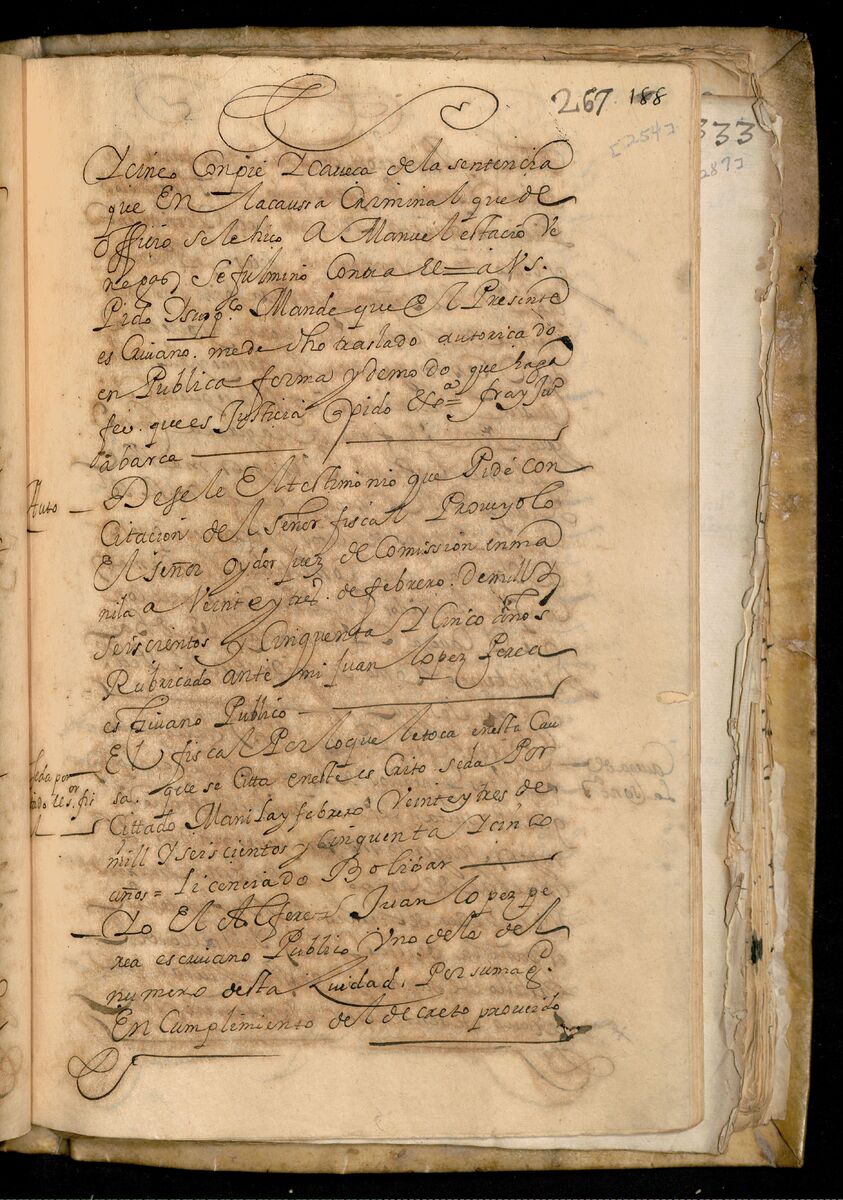 267 188
[254]
333
287]
Y cinco Con pie Y caveca de la sentencia
que En la caussa Criminal que de
officio se le hiço A Manuel estacio Ve
negas Se fulmino Contra el = a Vs.
Pido Y supp.co Mande que El Presente
escrivano. me de dho traslado autoricado
en Publica forma y de modo que haga
fee. que es Justicia Y pido &a = fray Ju.o
Labarca
Auto
Desele El testimonio que Pide con
Citacion del Señor fiscal Proveyolo
El señor oydor juez de Comission en ma
nila a Veinte y tres. de febrero. de mill Y
seiscientos y Cinquenta Y Cinco años
Rubricado ante mi Juan lopez Perea
escrivano Publico
El fiscal Por lo que le toca en esta Cau
sa. que se Citta en este escrito se da Por
Cittado Manila y febrero Veinte y tres de
mill Y seiscientos y cinquenta Y cinco
años = licenciado Bolibar
Yo El Alferez Juan lopez pe
rea escrivano Publico Uno de los del
numero desta Ziudad. Por su mag.d
En Cumplimiento del decreto proveido